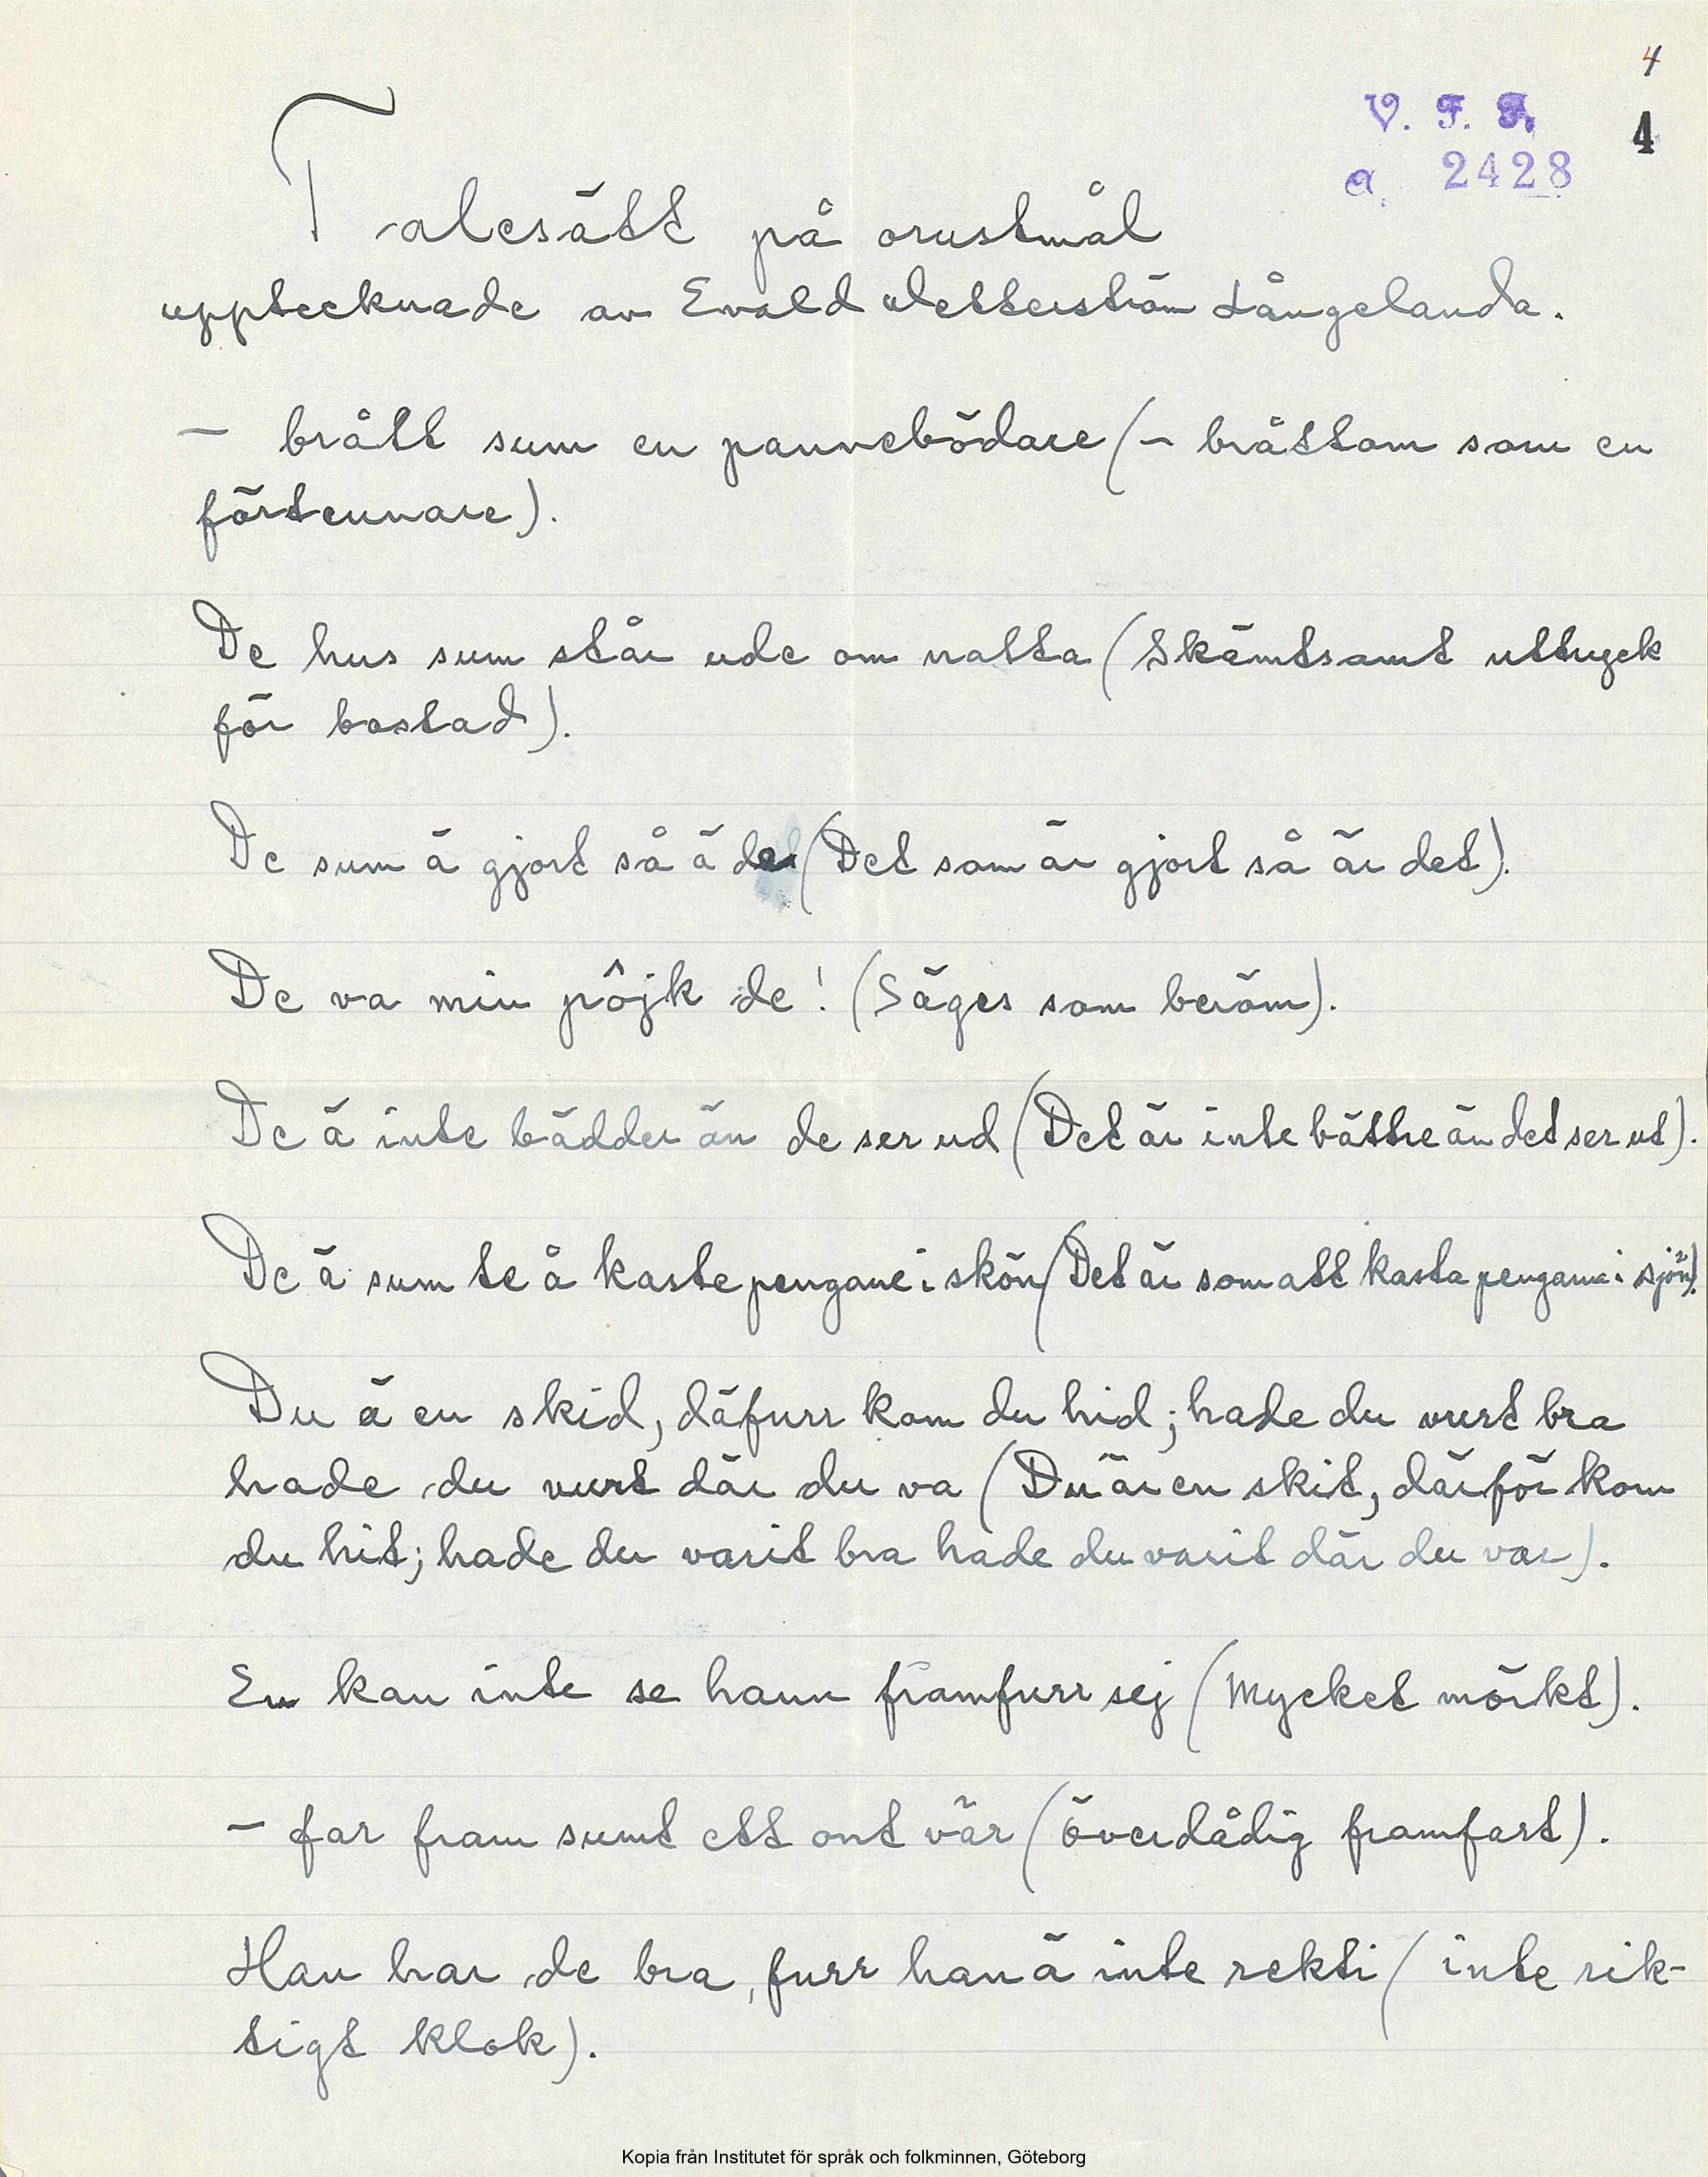 4
V. F. F.
4
a. 2428
Talesätt på orustmål
upptecknade av Evald Wetterström Långelanda.
– brått sum en pannebödare (– bråttom som en
förtennare).
De hus sum står ude om natta (Skämtsamt uttryck
för bostad).
De sum ä gjort så ä de (Det som är gjort så är det).
De va min pôjk de! (Säges som beröm).
De ä inte bädder än de ser ud (Det är inte bättre än det ser ut).
De ä sum te å kaste pengane i skön (Det är som att kasta pengarna i sjön).
Du ä en skid, däfurr kom du hid; hade du vurt bra
hade du vurt där du va (Du är en skit, därför kom
du hit; hade du varit bra hade du varit där du var).
En kan inte se hann framfurr sej (Mycket mörkt).
– far fram sumt ett ont vär (överdådig framfart).
Han har de bra, furr han ä inte rekti (inte rik-
tigt klok).
Kopia från Institutet för språk och folkminnen, Göteborg